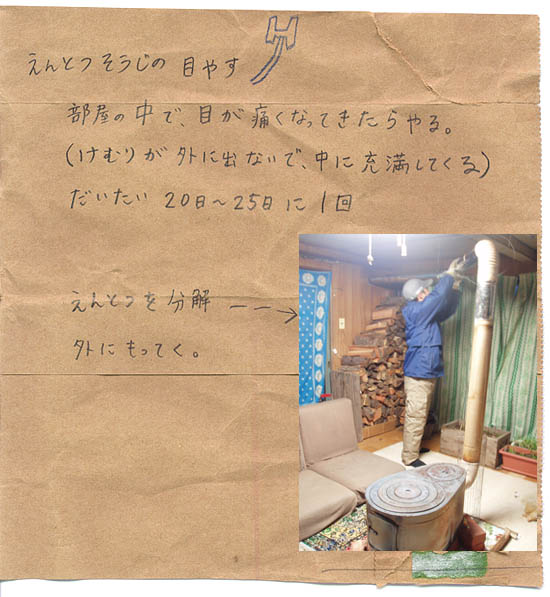 えんとつそうじの 目やす
部屋の中で、目が痛くなってきたらやる。
(けむりが外に出ないで、中に充満してくる)
だいたい 20日〜25日に1回
えんとつを分解 -->
外にもってく。